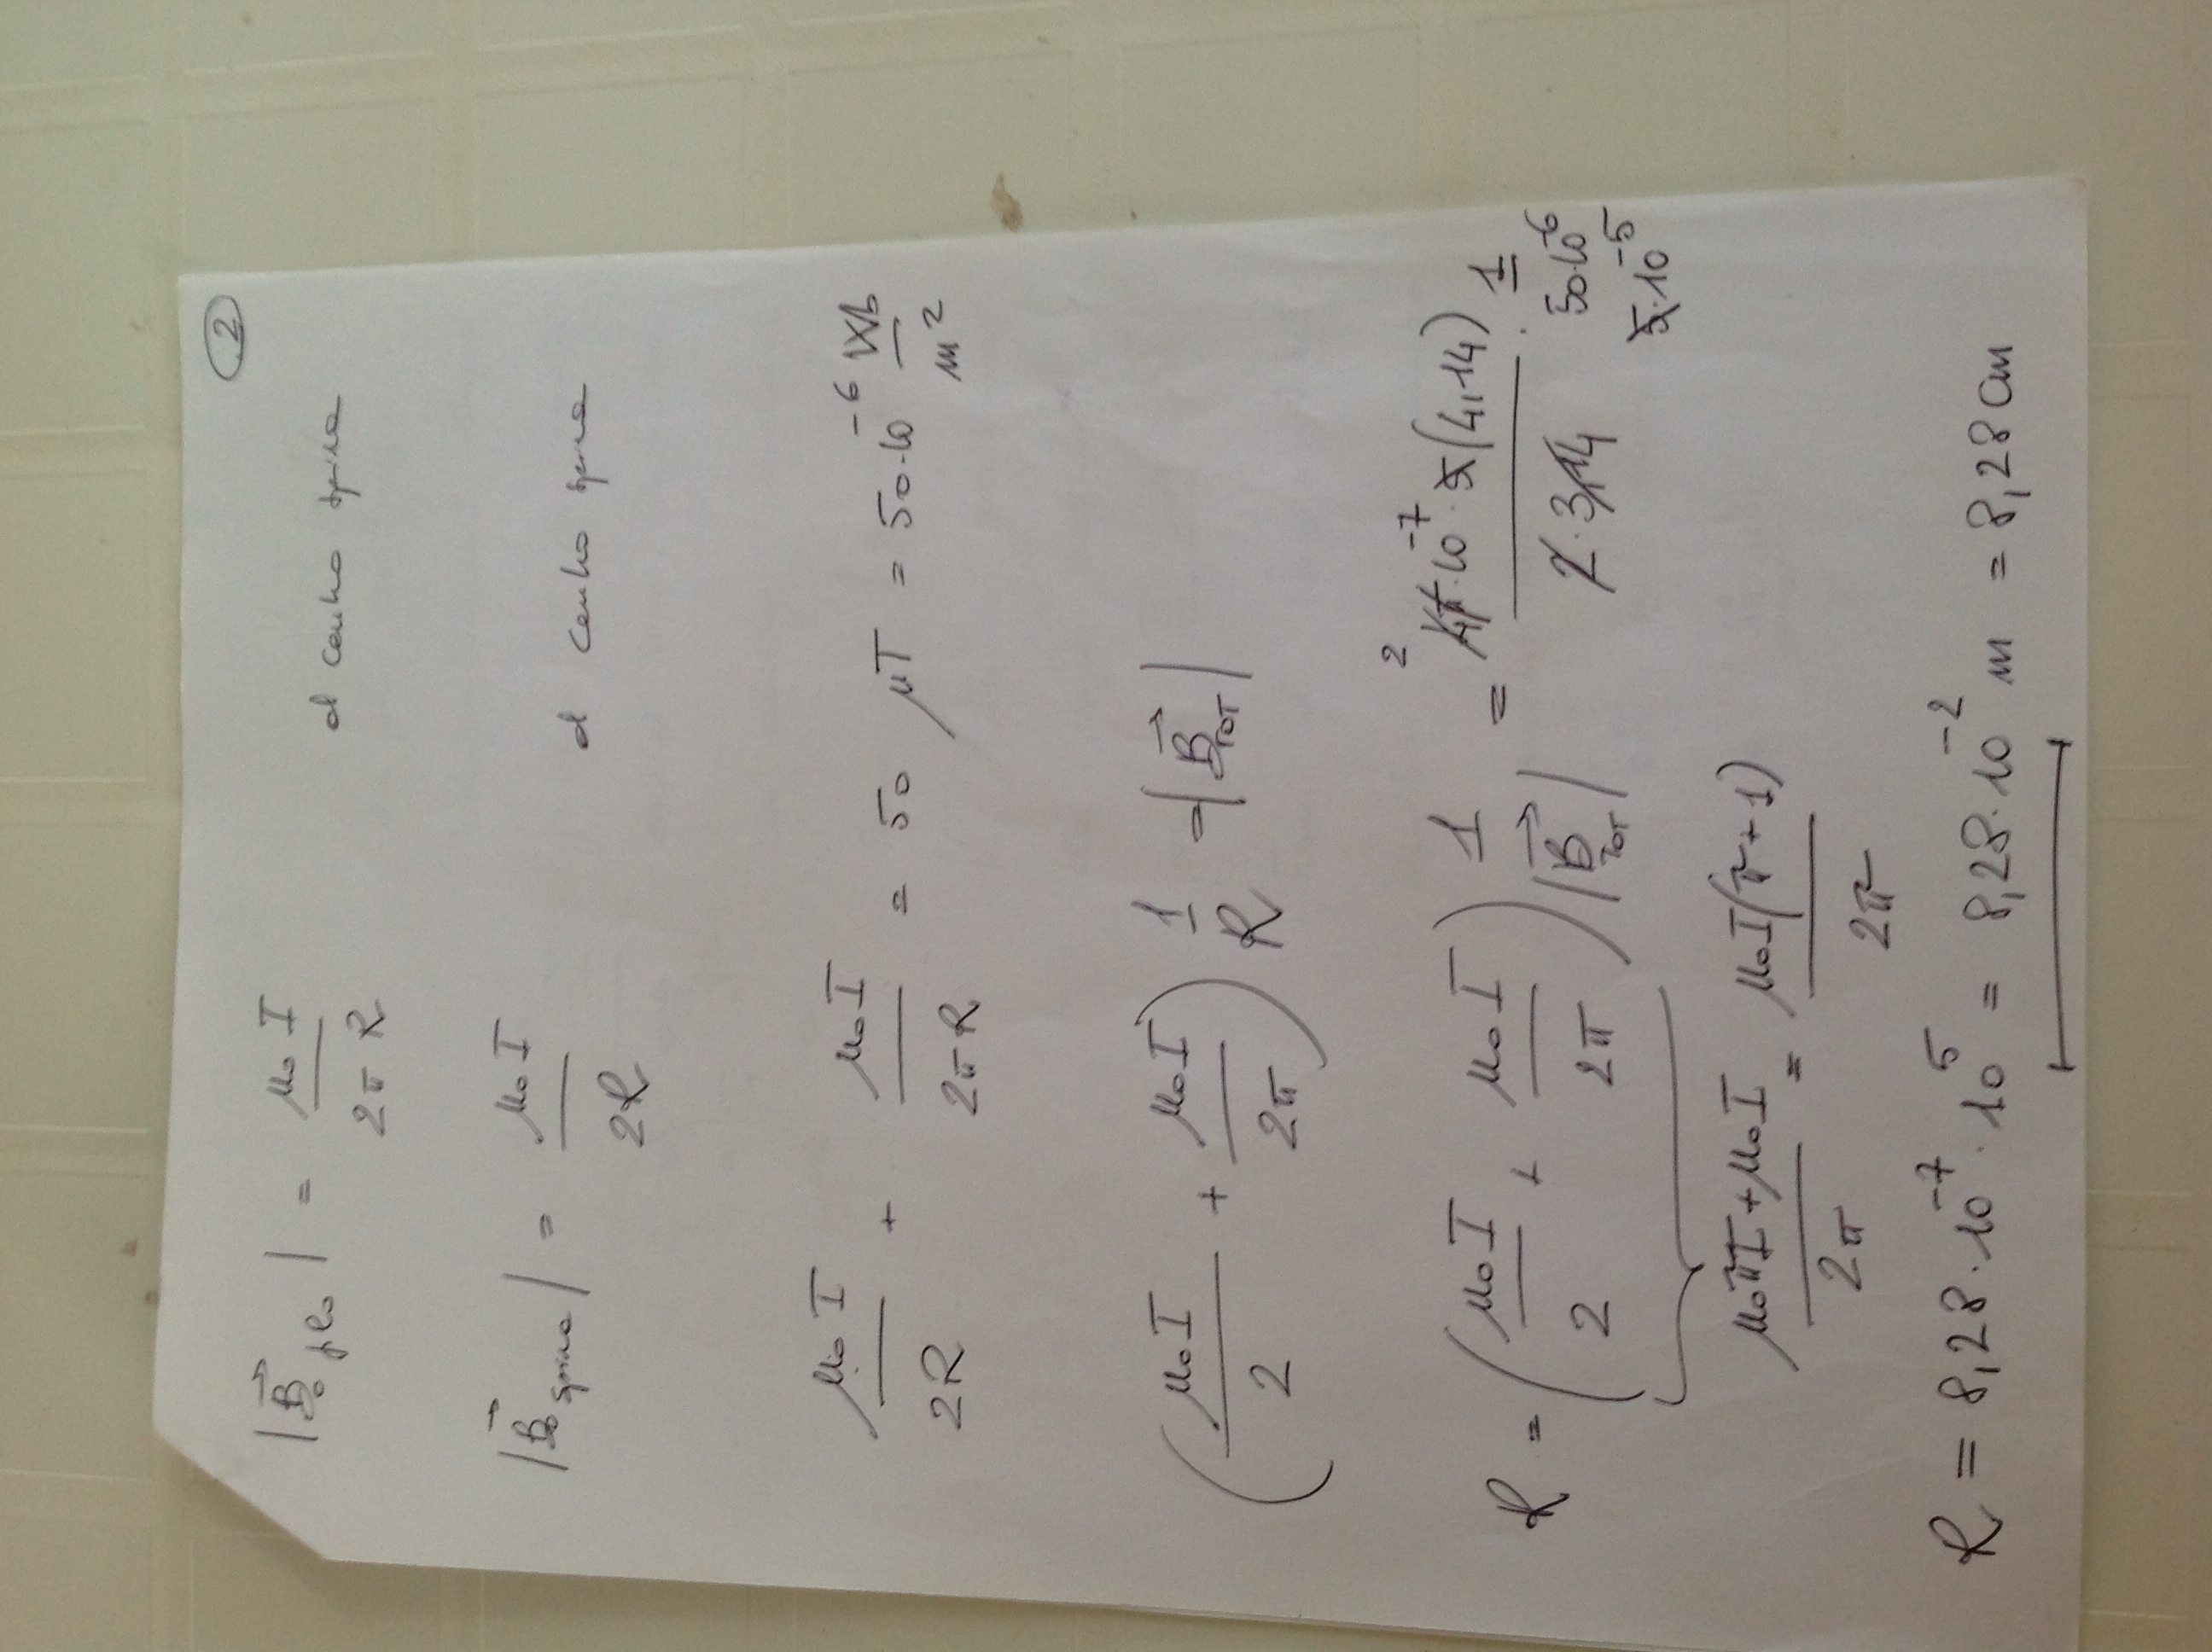 2
|B⃗₀ filo| = μ₀ I / 2π R al centro spira
|B⃗₀ spira| = μ₀ I / 2R al centro spira
μ₀ I / 2R + μ₀ I / 2π R = 50 μT = 50·10⁻⁶ Wb / m²
(μ₀ I / 2 + μ₀ I / 2π) 1 / R = |B⃗TOT|
R = (μ₀ I / 2 + μ₀ I / 2π) 1 / |B⃗TOT| = 2 4π·10⁻⁷·5(4,14) / 2·3,14 · 1 / 50·10⁻⁶
5·10⁻⁵
μ₀πI+μ₀I / 2π = μ₀I(π+1) / 2π
R = 8,28·10⁻⁷·10⁵ = 8,28·10⁻² m = 8,28 cm